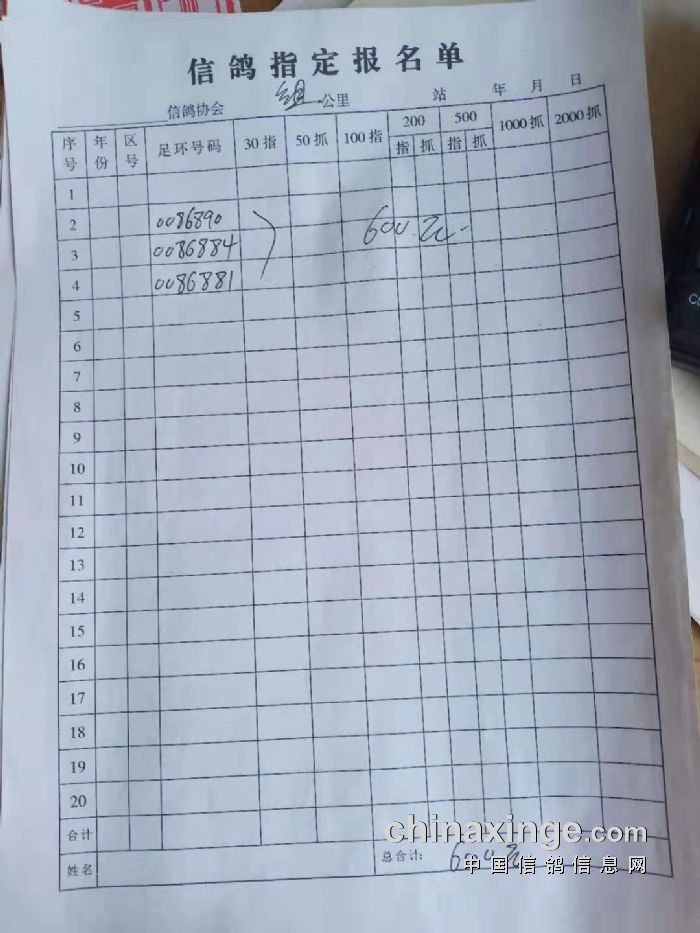 信鸽指定报名单
信鸽协会 组 公里 站 年 月 日
序号 年份 区号 足环号码 30指 50抓 100指 200 500 1000抓 2000抓
指 抓 指 抓
1
2 0086890 600元
3 0086884
4 0086881
5
6
7
8
9
10
11
12
13
14
15
16
17
18
19
20
合计
姓名 总合计: 600元
chinaxinge.com
中国信鸽信息网